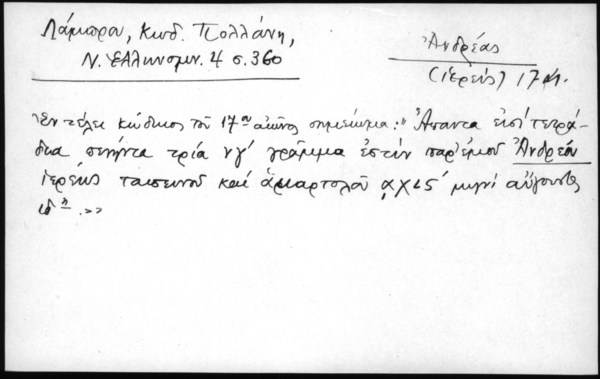 Λάμπρου, Κωδ. Πολλάνη,
Ν. Ελληνομν. 4 σ. 360
Ἀνδρέας
(ἱερεύς) 17
Ἐν τέλει κώδικος τοῦ 17ου αἰῶνος σημείωμα: "Ἅπαντα εἰσί τετρά-
δια πενήντα τρία νγ΄ γράμμα ἐστίν παρ' ἐμοῦ Ἀνδρέου
ἱερεύς ταπεινοῦ καί ἁμαρτολοῦ ͵αχ΄ μηνί αὐγούστου